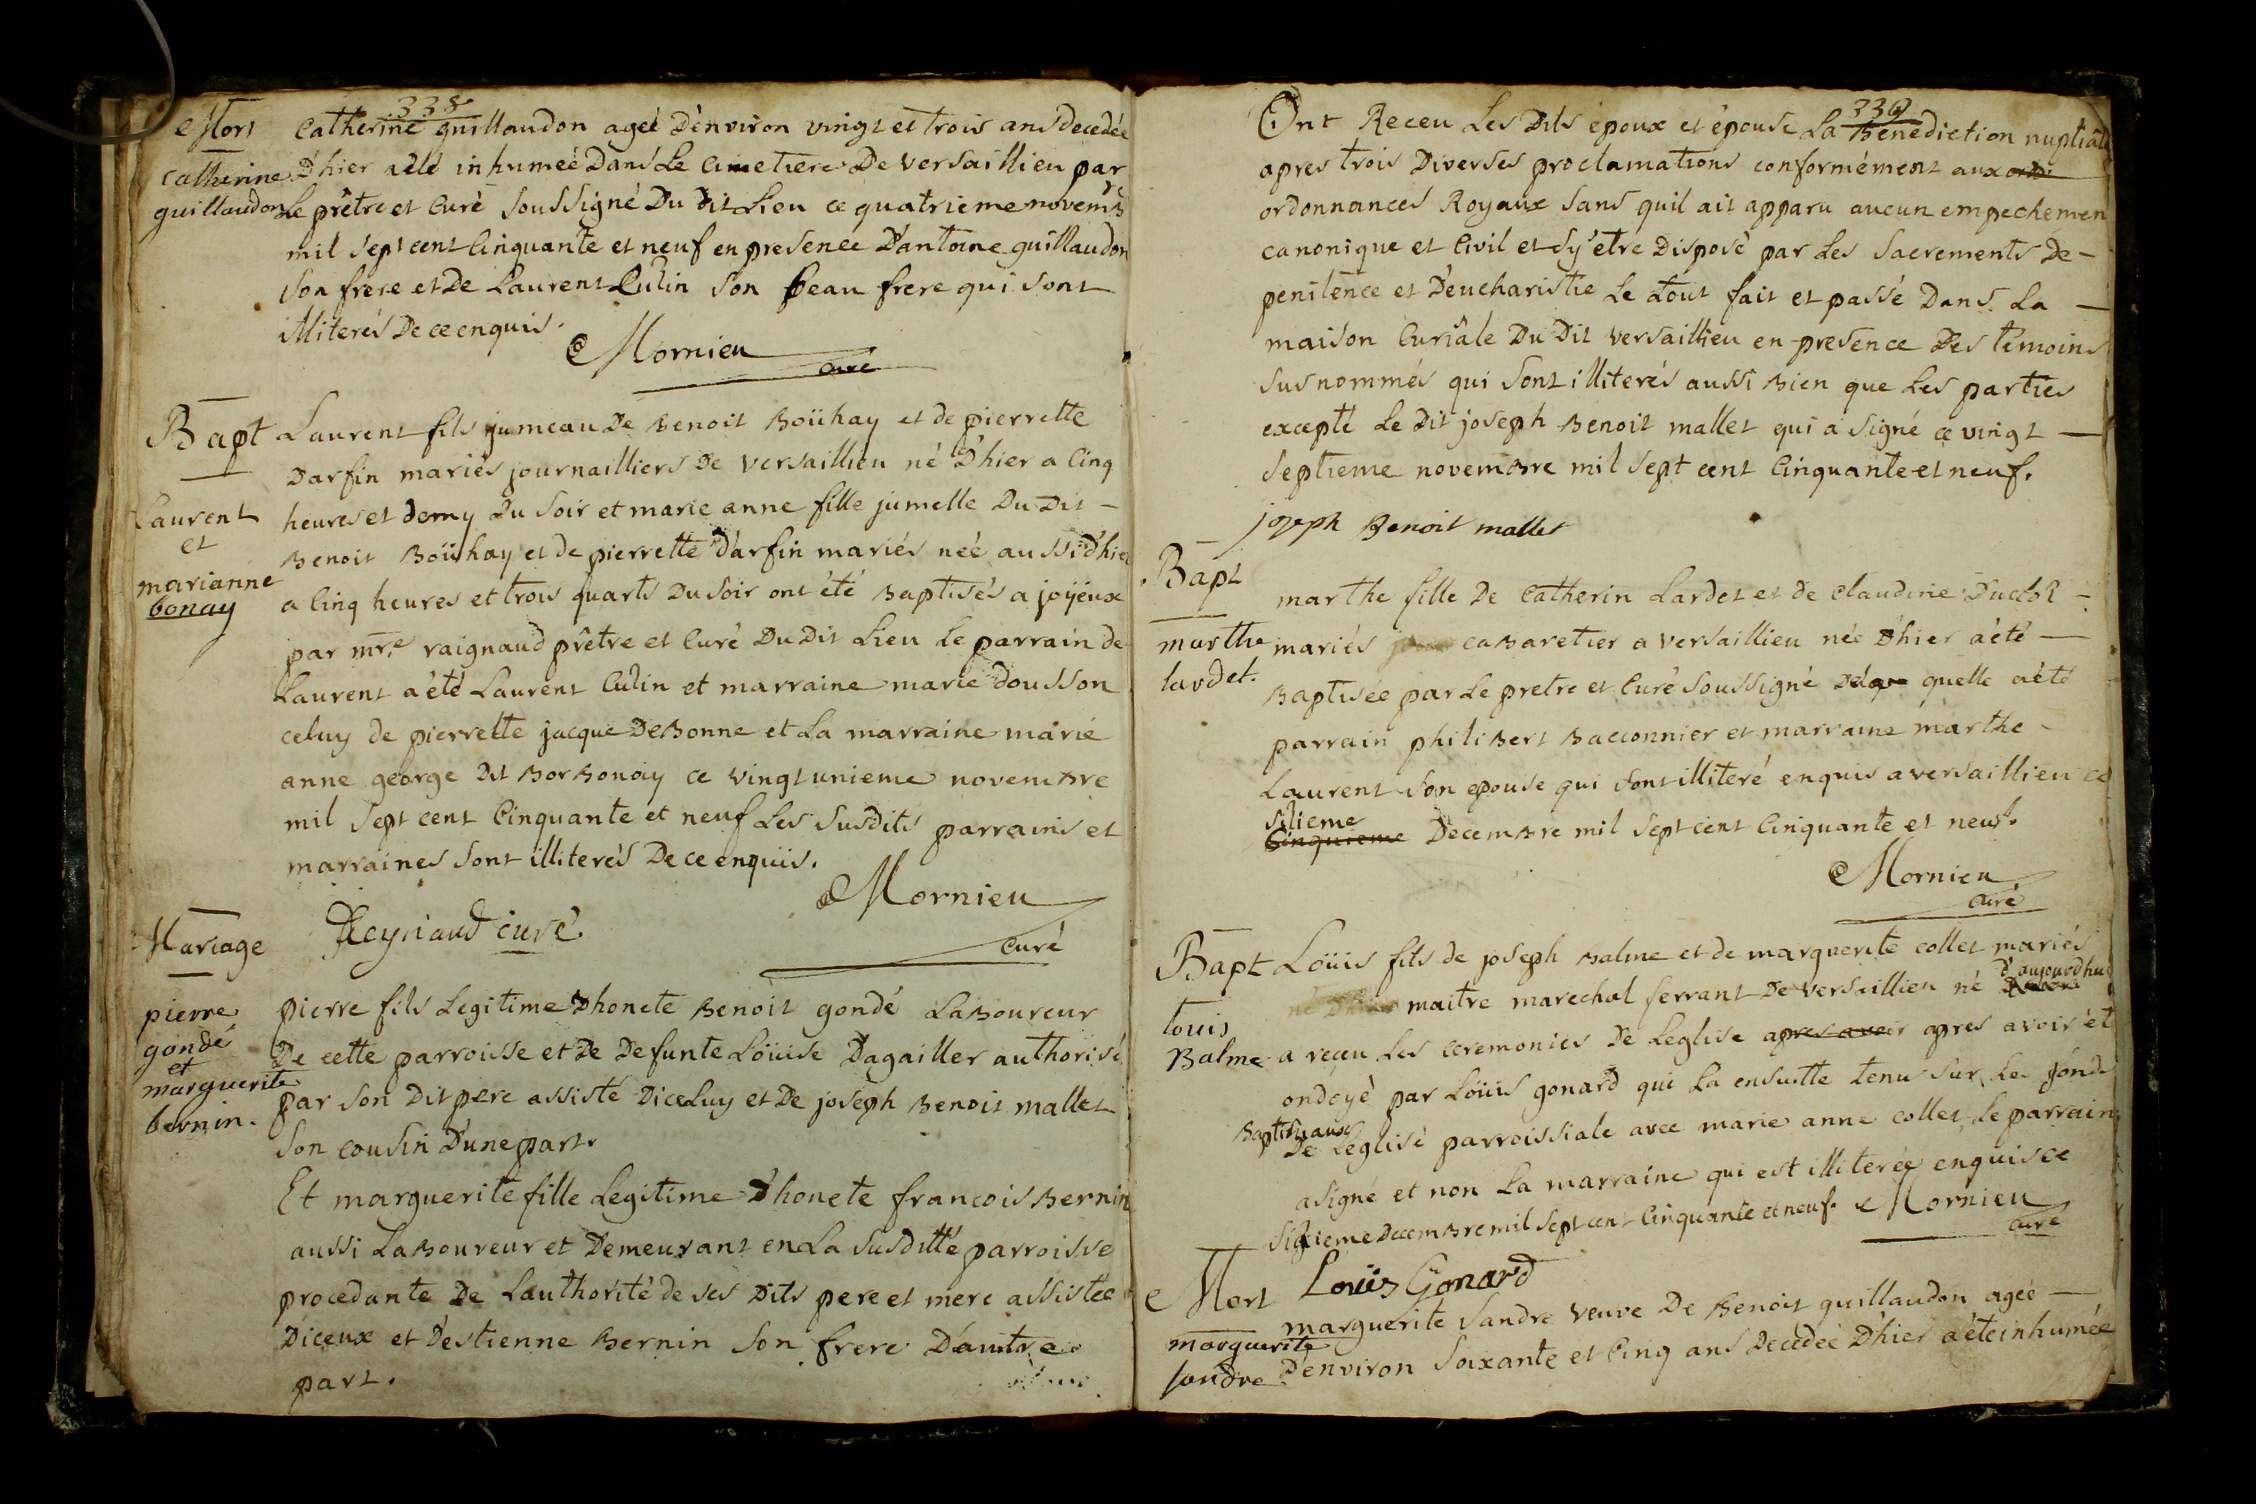 338
Mort
Catherine
guillaudon
Catherine guillaudon ageé D'environ vingt et trois ans decedée
D'hier a été inhumeé Dans Le Cimetiere De Versaillieu par
Le prêtre et Curé soussigné Du dit Lieu ce quatrieme novemb
mil sept cent Cinquante et neuf en presence D'antoine guillaudon
son frere et De Laurent Culin son beau frere qui sont
illiterés De ce enquis.
Mornieu
Curé
Bapt
Laurent
et
marianne
bonay
Laurent fils jumeau De Benoit Boühay et de pierrette
Darfin mariés journailliers De Versaillieu né D'hier a Cinq
heures et demy Du soir et marie anne fille jumelle Du Dit -
Benoit Boühay et de pierrette Darfin mariés neé aussi d'hier
a Cinq heures et trois quarts Du soir ont été Baptisés a joÿeux
par mre raignaud prêtre et Curé Du Dit Lieu Le parrain de
Laurent a été Laurent Culin et marraine marie dousson
celuy de pierrette jacque DeBonne et La marraine marie
anne george Dit Borbonay ce vingt unieme novembre
mil sept cent Cinquante et neuf Les susdits parrains et
marraines sont illiterés De ce enquis.
Mornieu
Curé
Reynaud curé
Mariage
pierre
gondé
et
marguerite
bernin.
pierre fils Legitime D'honete Benoit gondé Laboureur
De cette parroisse et De Defunte Loüise Dagailler authorisé
par son Dit pere assisté Diceluy et De joseph Benoit mallet
son cousin D'une part.
Et marguerite fille Legitime D'honete francois Bernin
aussi Laboureur et Demeurant en La susditte parroisse
procedante De Lauthorité de ses Dits pere et mere assistée
Diceux et D'estienne Bernin son frere D'autre
part.
339
Ont Receu Les Dits époux et épouse La Benediction nuptiale
apres trois Diverses proclamations conformément aux ord.
ordonnances Royaux sans quil ait apparu aucun empechemen
canonique et Civil et s'y etre Disposé par Les sacrements De -
penitence et D'eucharistie Le tout fait et passé Dans La -
maison Curiale Du Dit Versaillieu en presence Des temoins
susnommés qui sont illiterés aussi Bien que Les parties
excepté Le Dit joseph Benoit mallet qui a signé ce vingt -
septieme novembre mil sept cent Cinquante et neuf.
joseph Benoit mallet
Bapt
marthe
lardet.
marthe fille De Catherin Lardet et de Claudine Duclos -
mariés cabaretier a Versaillieu née D'hier a été -
Baptisée par Le pretre et Curé soussigné quelle a été
parrain philibert Bacconnier et marraine marthe -
Laurent son epouse qui sont illiteré enquis a versaillieu ce
sizieme
Cinquieme Decembre mil sept cent Cinquante et neuf.
Mornieu
Curé
Bapt
Louis
Balme
Loüis fils de joseph Balme et de marguerite collet mariés
d'aujourdhui
né D'hier maitre marechal ferrant De Versaillieu né
a receu Les ceremonies De Leglise apres avoir apres avoir ét
ondoyé par Loüis gonard qui La ensuitte tenu sur Les fonds
Baptismaux
De Leglise parroissiale avec marie anne collet Le parrain
a signé et non La marraine qui est illiterée enquis ce
sizieme Decembre mil sept cent Cinquante et neuf. Mornieu
Curé
Loüis Gonard
Mort
marguerite
sandre
marguerite sandre veuve De Benoit guillaudon ageé -
D'environ soixante et Cinq ans Decedeé D'hier a été inhumée